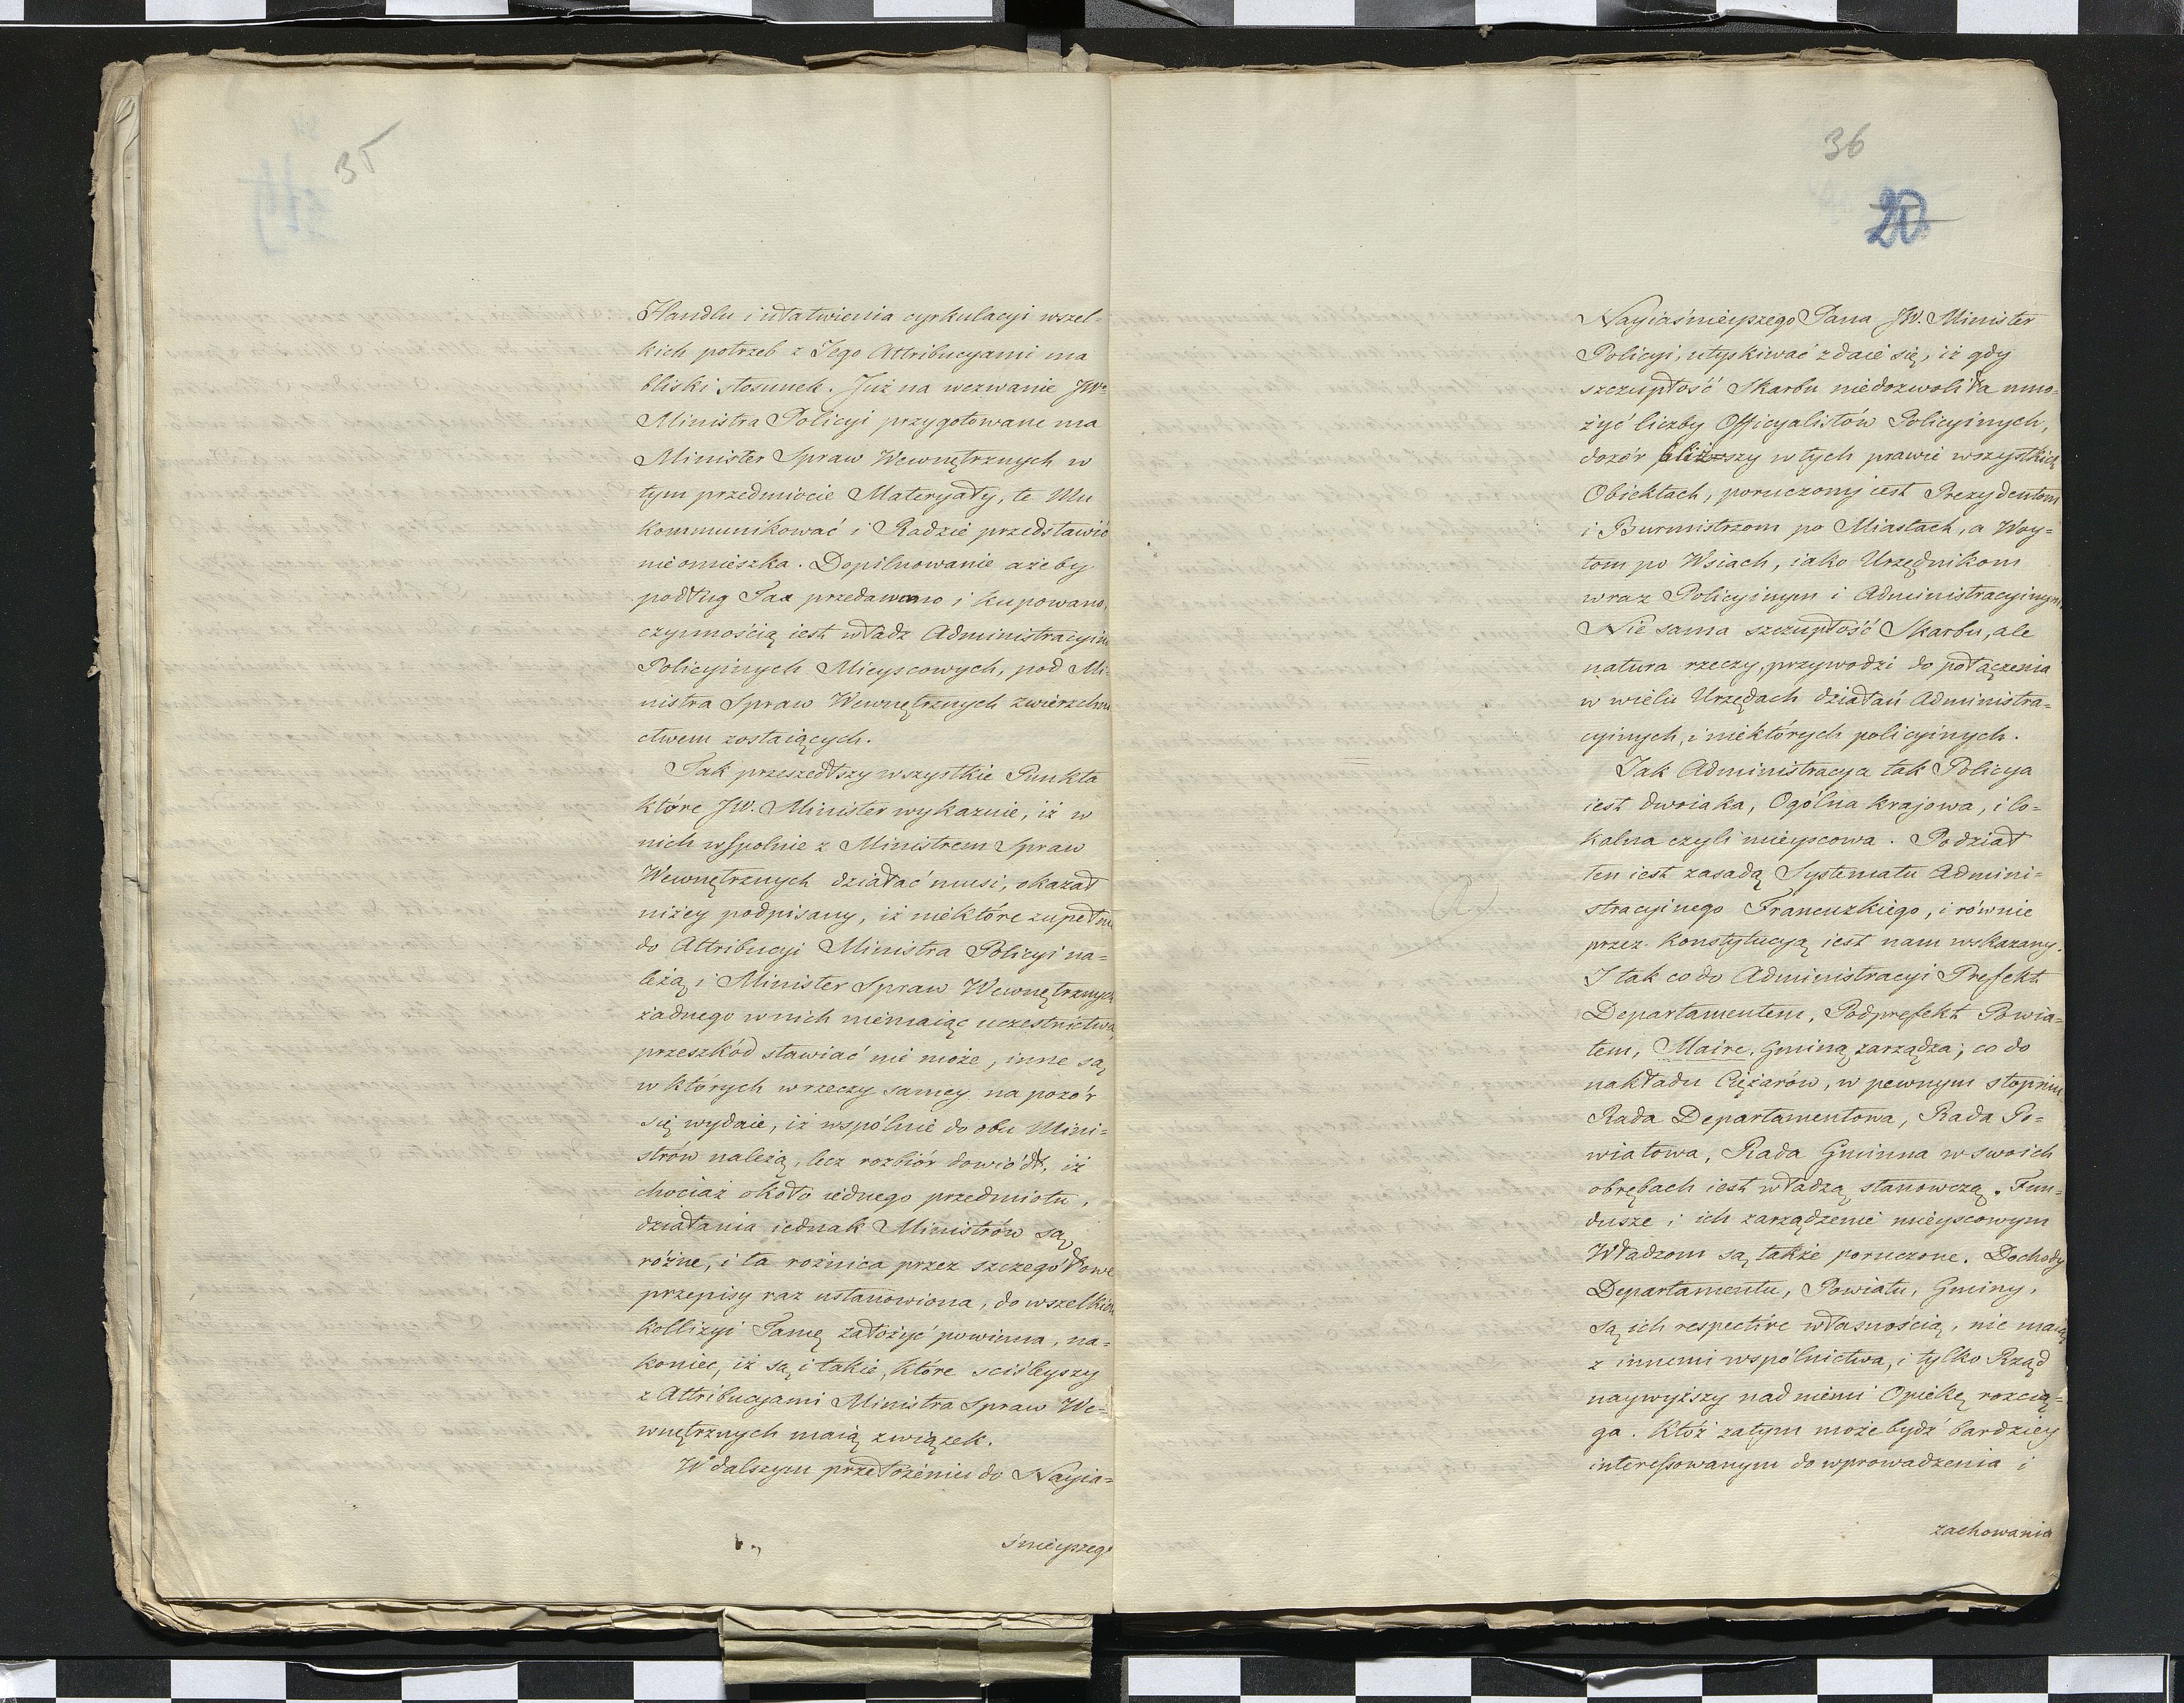 35
Handlu i ułatwienia cyrkulacyi wszel=
kich potrzeb z Jego Attribucyami ma
bliski stosunek. Już na wezwanie JWo
Ministra Policyi przygotowane ma
Minister Spraw Wewnętrznych w
tym przedmiocie Materyały, te Mu
kommunikować i Radzie przedstawić
nieomieszka. Dopilnowanie ażeby
podług Tax przedawano i kupowano,
czynnością iest władz Administracyino
Policyinych Mieyscowych, pod Mi-
nistra Spraw Wewnętrznych zwierzchni
ctwem zostaiących.
Tak przeszedłszy wszystkie Punkta
które JW. Minister wykazuie, iż w
nich wspolnie z Ministrem Spraw
Wewnętrznych działać musi, okazał
niżey podpisany, iż niektóre zupełnie
do Attribucyi Ministra Policyi na=
leżą i Minister Spraw Wewnętrznych
żadnego w nich niemaiąc uczestnictwa,
przeszkód stawiać nie może, inne są,
w których w rzeczy samey na pozór
się wydaie, iż wspólnie do obu Mini=
strów należą, lecz rozbiór dowiódł, iż
chociaż około iednego przedmiotu,
działania iednak Ministrów są
różne, i ta rożnica przez szczegółowe
przepisy raz ustanowiona, do wszelkich
kollizyi Tamę założyć powinna, na=
koniec, iż są i takie, które sciśleyszy
z Attribucyami Ministra Spraw We=
wnętrznych maią związek.
W dalszym przełożeniu do Nayia=
śnieyszego
36
20
Nayiaśnieyszego Pana JW. Minister
Policyi, utyskiwać zdaie się, iż gdy
szczupłość Skarbu niedozwoliła mno=
żyć liczby Officyalistów Policyinych,
dozór bliższy w tych prawie wszystkich
Obiektach, poruczony iest Prezydentom
i Burmistrzom po Miastach, a Woy=
tom po Wsiach, iako Urzędnikom
wraz Policyinym i Administracyinym.
Nie sama szczupłość Skarbu, ale
natura rzeczy, przywodzi do połączenia
w wielu Urzędach działań Administra=
cyinych, i niektórych policyinych.
Jak Administracya tak Policya
iest dwoiaka, Ogólna krajowa, i lo=
kalna czyli mieyscowa. Podział
ten iest zasadą Systematu Admini=
stracyinego Francuzkiego, i równie
przez Konstytucyą iest nam wskazany.
I tak co do Administracyi Prefekt
Departamentem, Podprefekt Powia=
tem, Maire, Gminą zarządza; co do
nakładu Ciężarów, w pewnym stopniu
Rada Departamentowa, Rada Po=
wiatowa, Rada Gminna w swoich
obrębach iest władzą stanowczą. Fun=
dusze i ich zarządzenie mieyscowym
Władzom są także poruczone. Dochody
Departamentu, Powiatu, Gminy,
są ich respective własnością, nie maią
z innemi wspólnictwa, i tylko Rząd
naywyższy nad niemi Opiekę rozcią=
ga. Któż zatym może bydź bardziey
interessowanym do wprowadzenia i
zachowania